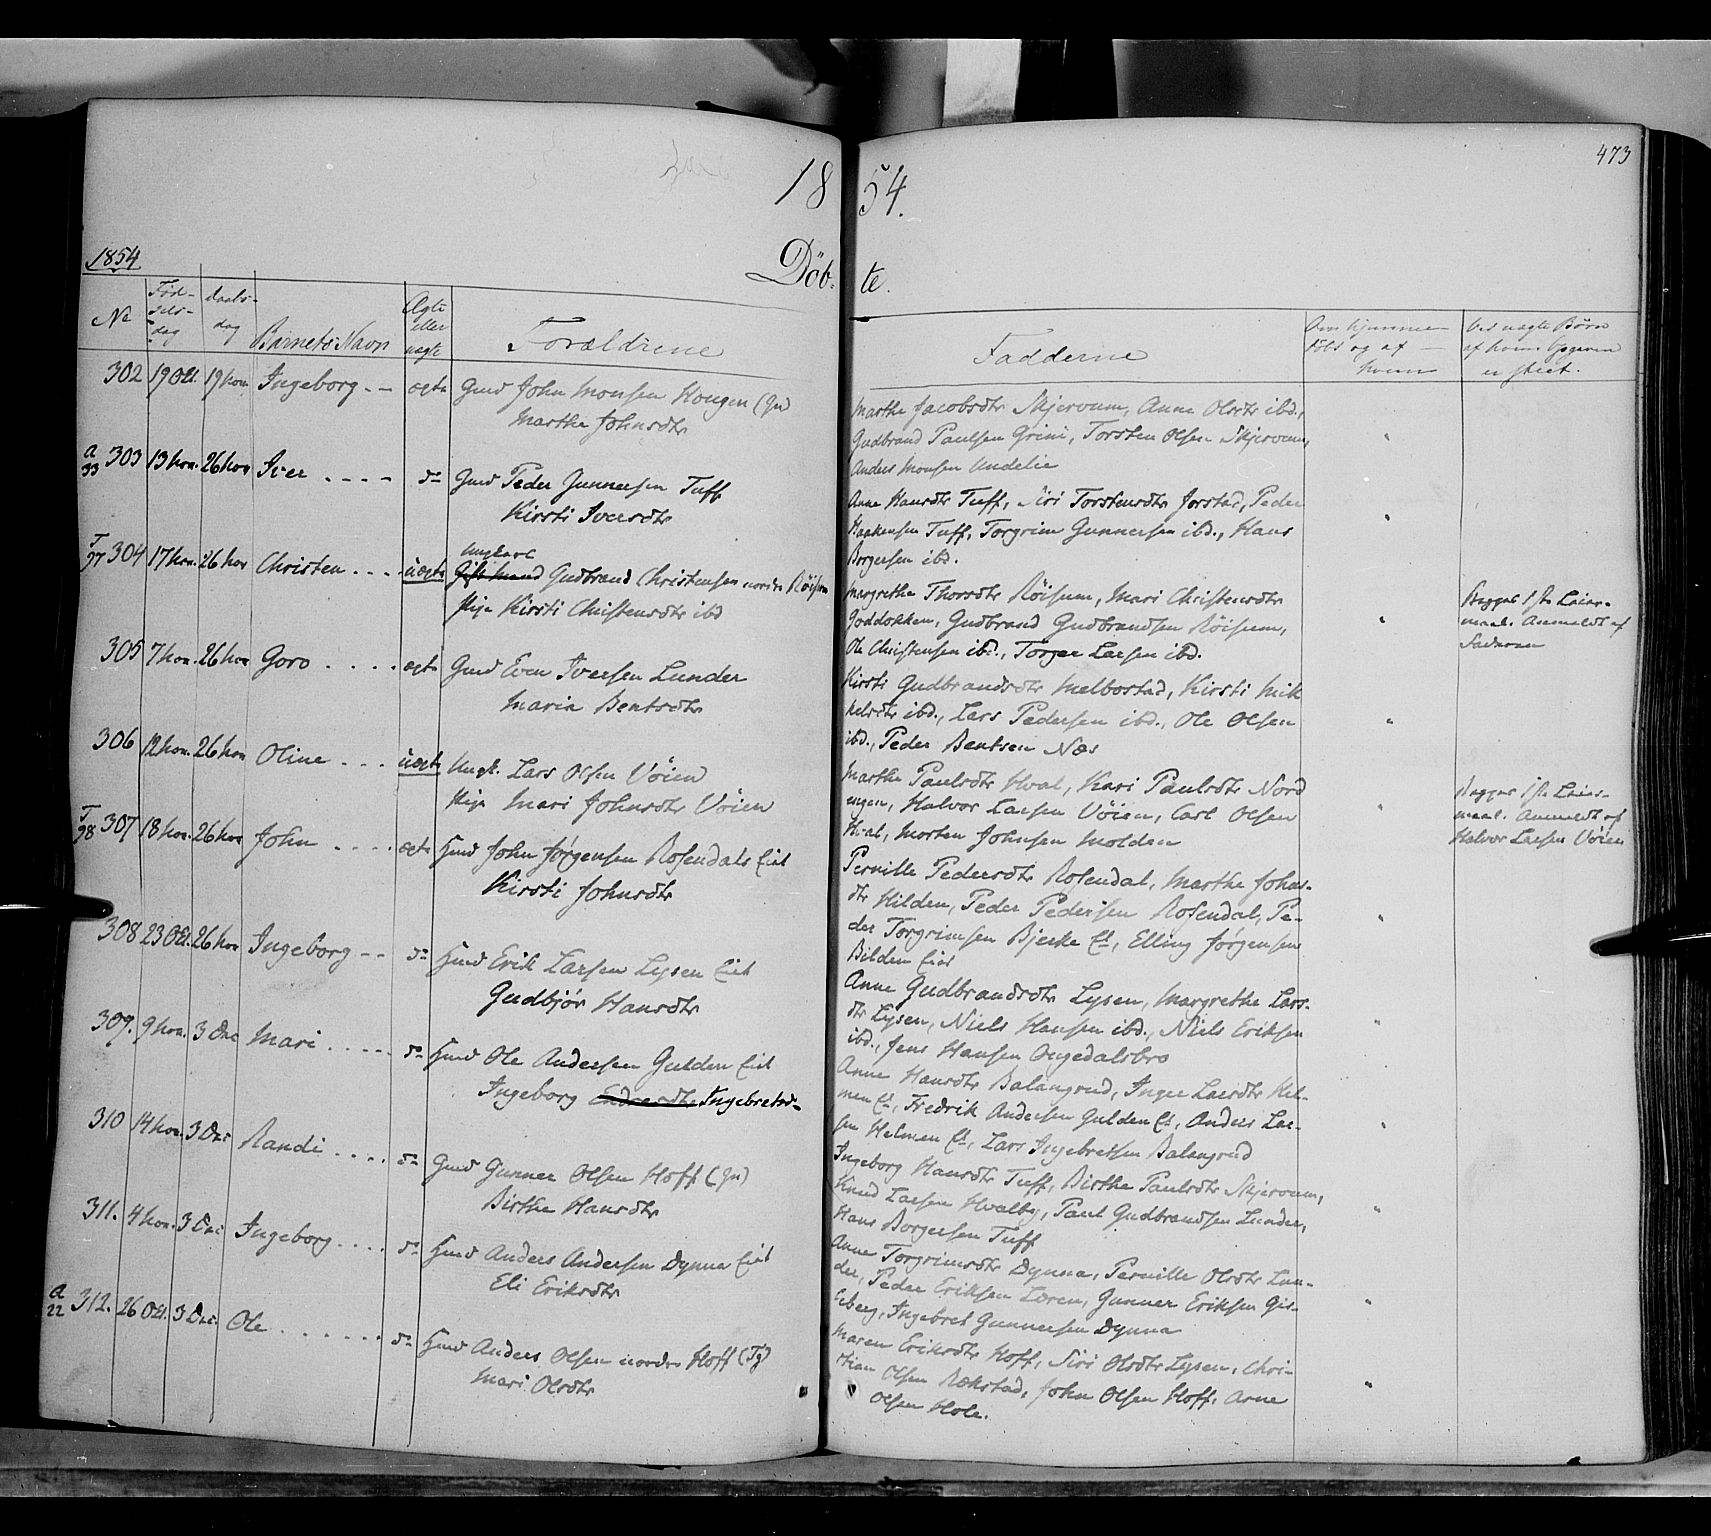 473
18 54.
1854
Döb- te.
No
Fød-
sels-
dag
daabs-
dag
Barnets Navn
Ægte
eller
uægte
Forældrene
Fadderne
Om hjemme-
døbt og af
hvem
Ved uægte Børn
af hvem Opgaven
er skeet.
302 19 Oct. 19 Nov. Ingeborg -- ægte Gmd John Monsen Haugen (Gn)
Marthe Johnsdtr
Marthe Jacobsdtr Skjervum, Anne Olsdtr ibd.,
Gudbrand Paulsen Grini, Torsten Olsen Skjervum,
Anders Monsen Undelie
a 33 303 13 Nov. 26 Nov Iver .... do Gmd Peder Gunnersen Tuff
Kirsti Iversdtr
Anne Hansdtr Tuff, Siri Torstensdtr Jorstad, Peder
Haakensen Tuff, Torgrim Gunnersen ibd., Hans
Borgersen ibd.
T 97 304 17 Nov. 26 Nov Christen .... uægte Ungkarl
Gift Mand Gudbrand Christensen nordre Røisum
Pige Kirsti Christensdtr ibd
Margrethe Thorsdtr Røisum, Mari Christensdtr
Goddokken, Gudbrand Gudbrandsen Røisum,
Ole Christensen ibd., Torger Larsen ibd.
Begges 1ste Leier-
maal. Anmeldt af
Faderen
305 7 Nov. 26 Nov Goro .... ægte Gmd Even Iversen Lunder
Marie Bentsdtr
Kirsti Gudbrandsdtr Melbostad, Kirsti Mik
kelsdtr ibd., Lars Pedersen ibd., Ole Olsen
ibd., Peder Bentsen Næs
306 12 Nov. 26 Nov Oline ... uægte Ungk. Lars Olsen Vøien
Pige Mari Johnsdtr Vøien
Marthe Paulsdtr Hval, Kari Paulsdtr Nord
engen, Halvor Larsen Vøien, Carl Olsen
Hval, Morten Johnsen Molden
Begges 1ste Leier-
maal. Anmeldt af
Halvor Larsen Vøien
T 98 307 18 Nov. 26 Nov John .... ægte Hmd John Jørgensen Rosendals Eiet
Kirsti Johnsdtr
Pernille Pedersdtr Rosendal, Marthe Johns-
dtr Hilden, Peder Pedersen Rosendal, Pe-
der Torgrimsen Bjerke Et, Elling Jørgensen
Bilden Eiet
308 23 Oct. 26 Nov Ingeborg -- do Hmd Erik Larsen Lysen Eiet
Gudbjør Hansdtr
Anne Gudbrandsdtr Lysen, Margrethe Lars-
dtr Lysen, Niels Hansen ibd., Niels Eriksen
ibd., Jens Hansen Ongedalsbro
309. 9 Nov. 3 Dec Mari ..... do Hmd Ole Andersen Gulden Eiet
Ingeborg Endresdtr Ingebretsd-
Anne Hansdtr Balangrud, Inger Larsdtr Hel-
men Et, Fredrik Andersen Gulden Et, Anders Lar-
sen Helmen Et, Lars Ingebretsen Balangrud
310 14 Nov. 3 Dec Randi .... do Gmd Gunner Olsen Hoff (Gn)
Birthe Hansdtr
Ingeborg Hansdtr Tuff, Birthe Paulsdtr Skjervum,
Knud Larsen Hvalby, Paul Gudbrandsen Lunder,
Hans Borgersen Tuff
311. 4 Nov. 3 Dec Ingeborg .... do Hmd Anders Andersen Dynna Eiet
Eli Eriksdtr
Anne Torgrimsdtr Dynna, Pernille Olsdtr Lun-
der, Peder Eriksen Læren, Gunner Eriksen Gis-
leberg, Ingebret Gunnersen Dynna
a 22 312. 26 Oct. 3 Dec. Ole ....... do Hmd Anders Olsen nordre Hoff (Tj)
Mari Olsdtr
Maren Eriksdtr Hoff, Siri Olsdtr Lysen, Chri-
stian Olsen Rækstad, John Olsen Hoff, Arne
Olsen Hole.